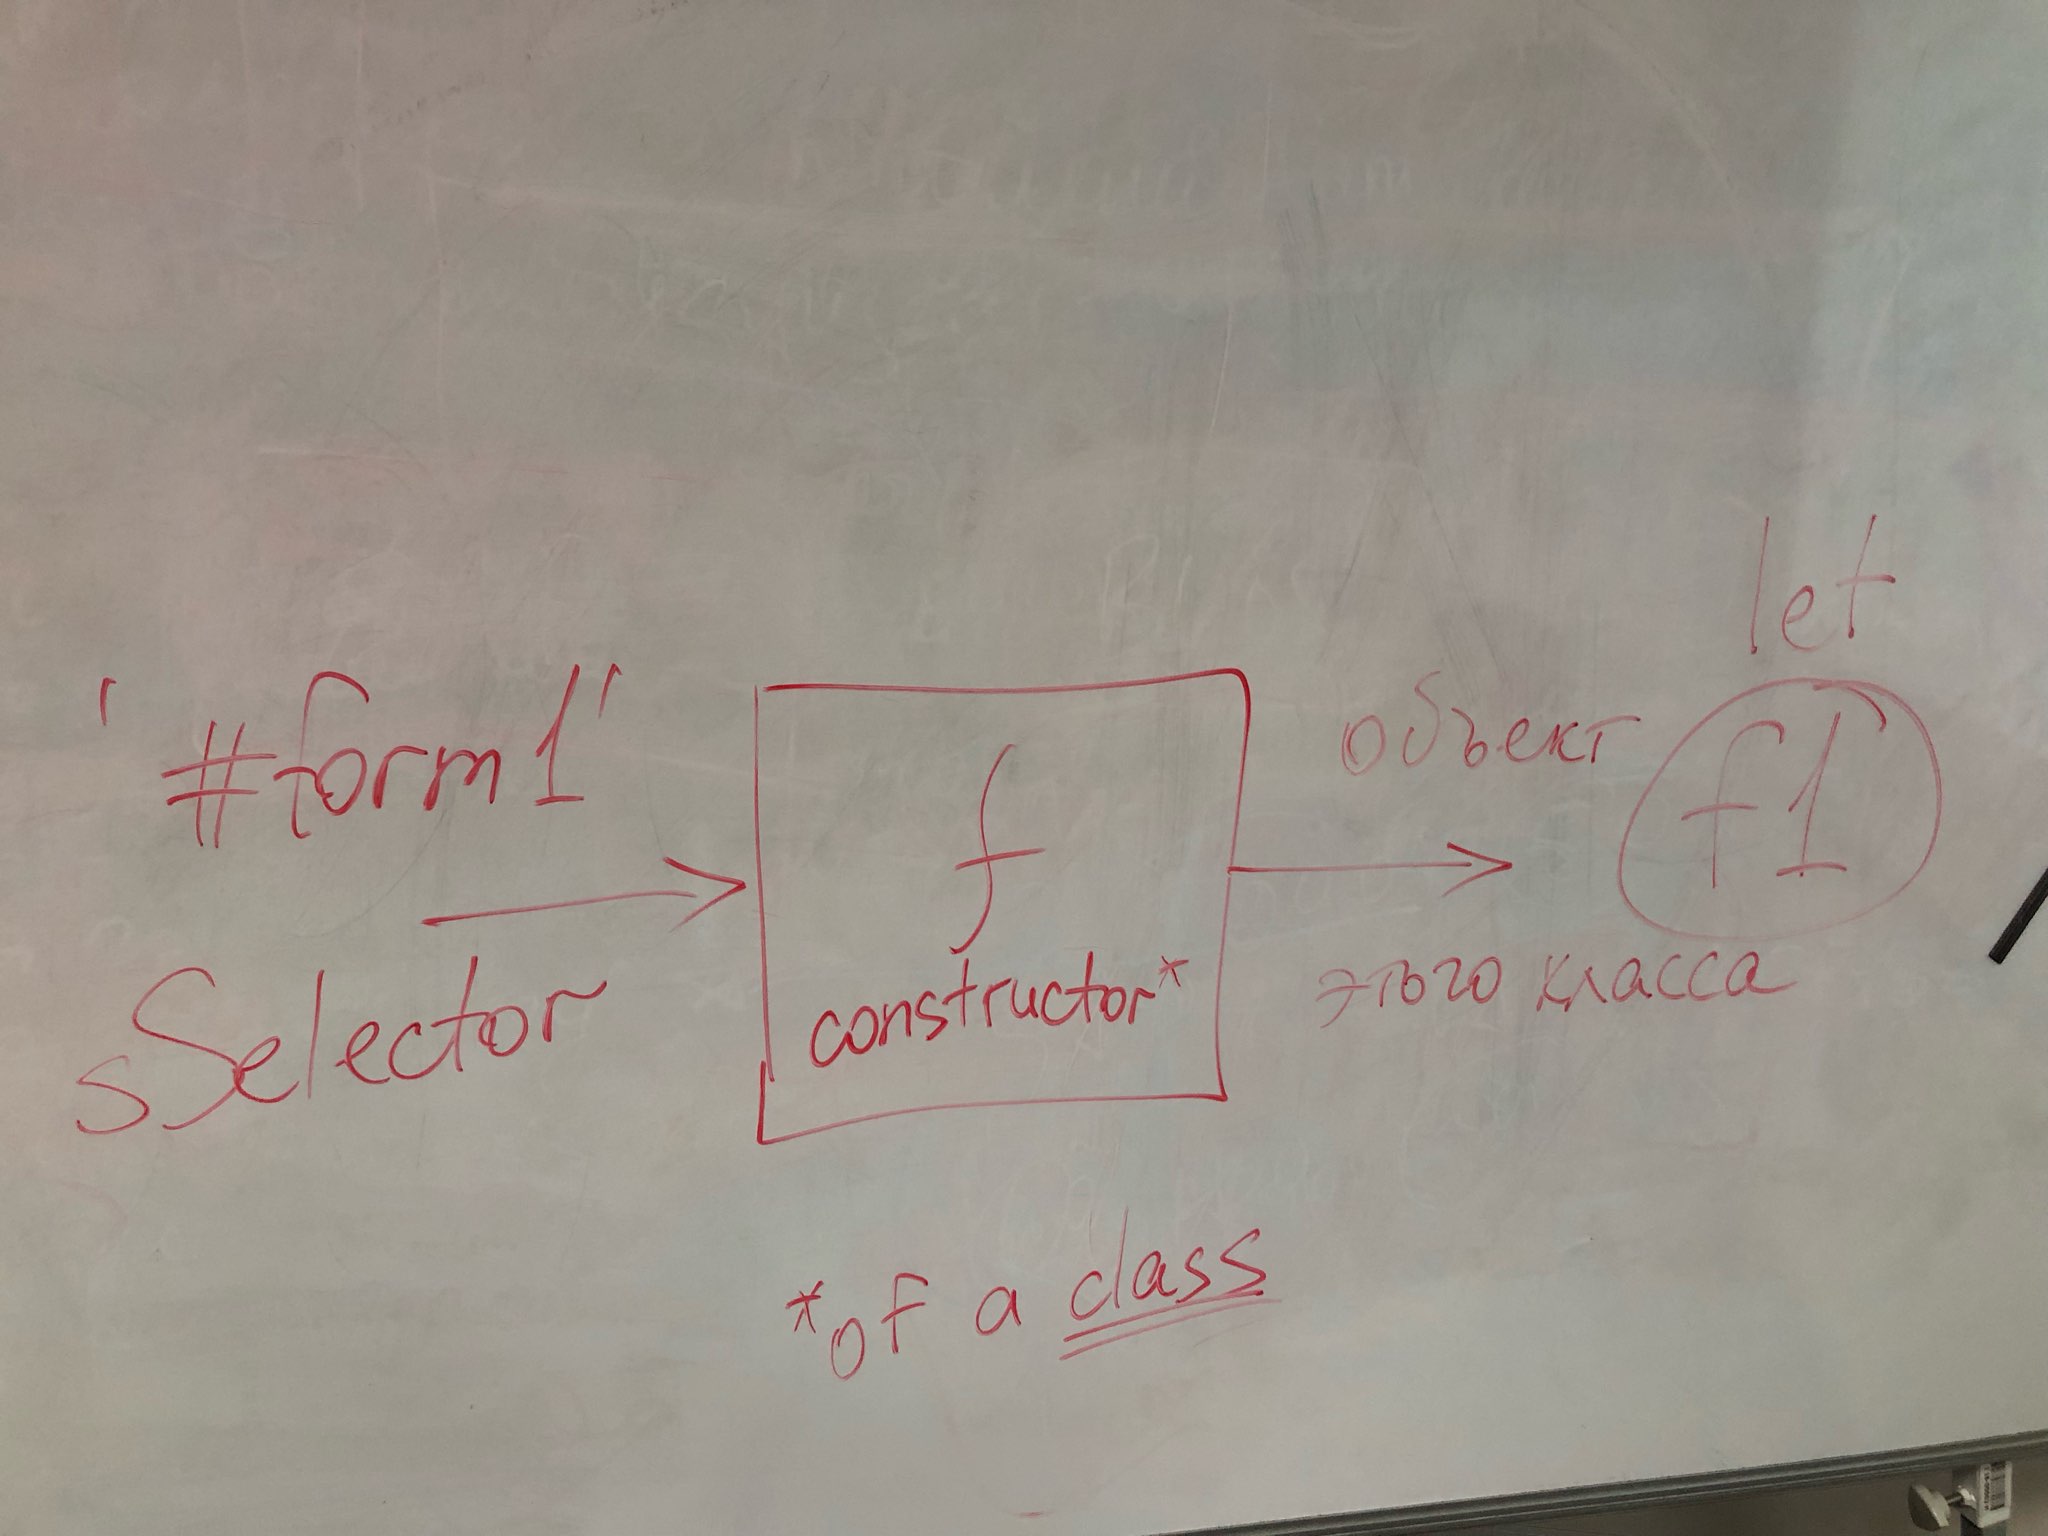 '#form1'
sSelector
f
constructor*
объект
этого класса
let
f1
*of a class